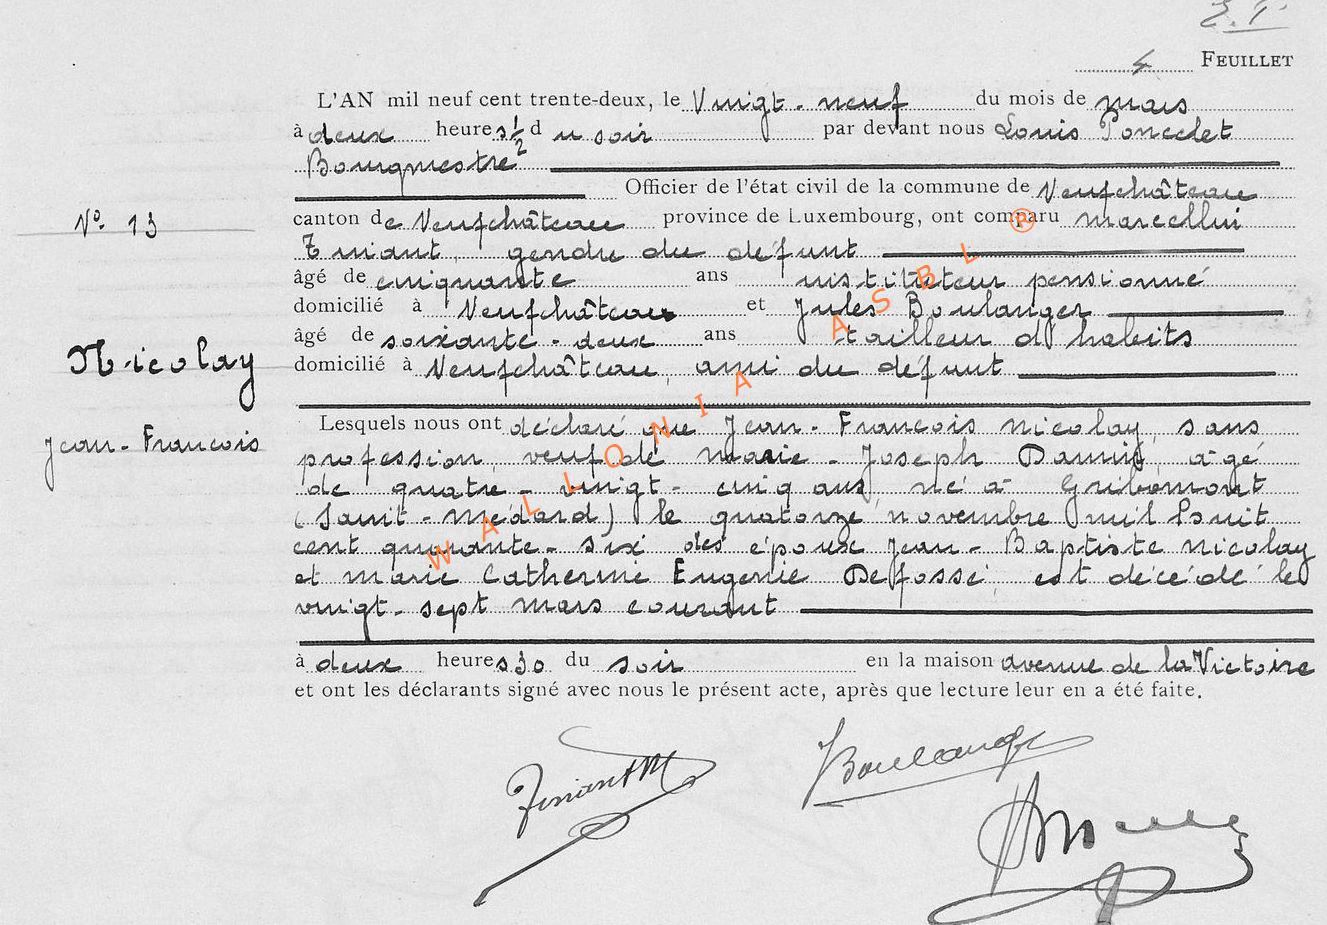 4 FEUILLET
L'AN mil neuf cent trente-deux, le Vingt-neuf du mois de mars
à deux heures ½ du soir par devant nous Louis Poncelet
Bourgmestre
Officier de l'état civil de la commune de Neufchâteau
N° 13
canton de Neufchâteau province de Luxembourg, ont comparu Marcellin
gendre du défunt
âgé de cinquante ans instituteur pensionné
domicilié à Neufchâteau et Jules Boulanger
âgé de soixante-deux ans tailleur d'habits
Nicolay
domicilié à Neufchâteau, ami du défunt
Jean-François
Lesquels nous ont déclaré que Jean-François Nicolay, sans
profession, veuf de Marie-Joseph, âgé
de quatre-vingt-cinq ans, né à Gribomont
(Saint-Médard) le quatorze novembre mil huit
cent quarante-six des époux Jean-Baptiste Nicolay
et Marie Catherine Eugénie Defossé, est décédé le
vingt-sept mars courant
à deux heures 30 du soir en la maison avenue de la Victoire
et ont les déclarants signé avec nous le présent acte, après que lecture leur en a été faite.
JBoulanger
WALLONIA ASBL ®